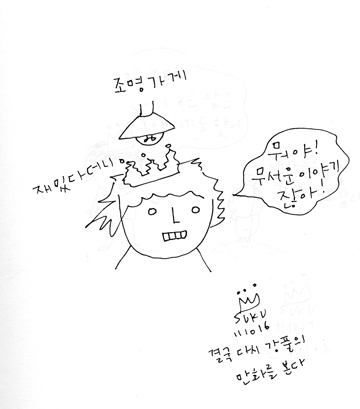 조명가게
재밌다더니
뭐야!
무서운 이야기
잖아!
SUKU
111016
결국 다시 강풀의
만화를 본다